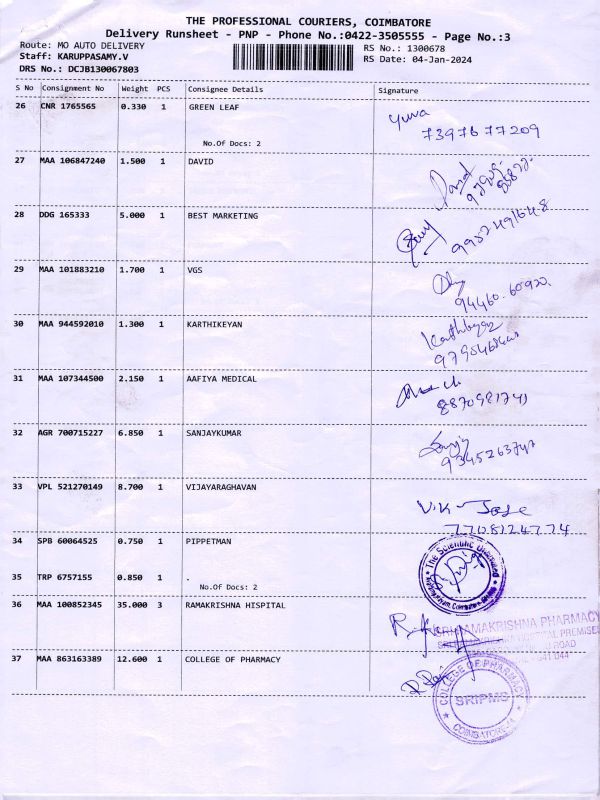 THE PROFESSIONAL COURIERS, COIMBATORE
Delivery Runsheet - PNP - Phone No.:0422-3505555 - Page No.:3
Route: MO AUTO DELIVERY RS No.: 1300678
Staff: KARUPPASAMY.V RS Date: 04-Jan-2024
DRS No.: DCJB130067803
S No Consignment No Weight PCS Consignee Details Signature
26 CNR 1765565 0.330 1 GREEN LEAF Yuva
No.Of Docs: 2 7397677209
27 MAA 106847240 1.500 1 DAVID David
28 DDG 165333 5.000 1 BEST MARKETING
9952491648
29 MAA 101883210 1.700 1 VGS
94460.60920.
30 MAA 944592010 1.300 1 KARTHIKEYAN
31 MAA 107344500 2.150 1 AAFIYA MEDICAL
8870981741
32 AGR 700715227 6.850 1 SANJAYKUMAR
33 VPL 521270149 8.700 1 VIJAYARAGHAVAN V.K- Jose
7708124774
34 SPB 60064525 0.750 1 PIPPETMAN
The Scientific
35 TRP 6757155 0.850 1 .
No.Of Docs: 2
36 MAA 100852345 35.000 3 RAMAKRISHNA HISPITAL
SRI RAMAKRISHNA PHARMACY
HOSPITAL PREMISES
ROAD
641 044
37 MAA 863163389 12.600 1 COLLEGE OF PHARMACY
COLLEGE OF PHARMACY
SRIPMS
COIMBATORE-44